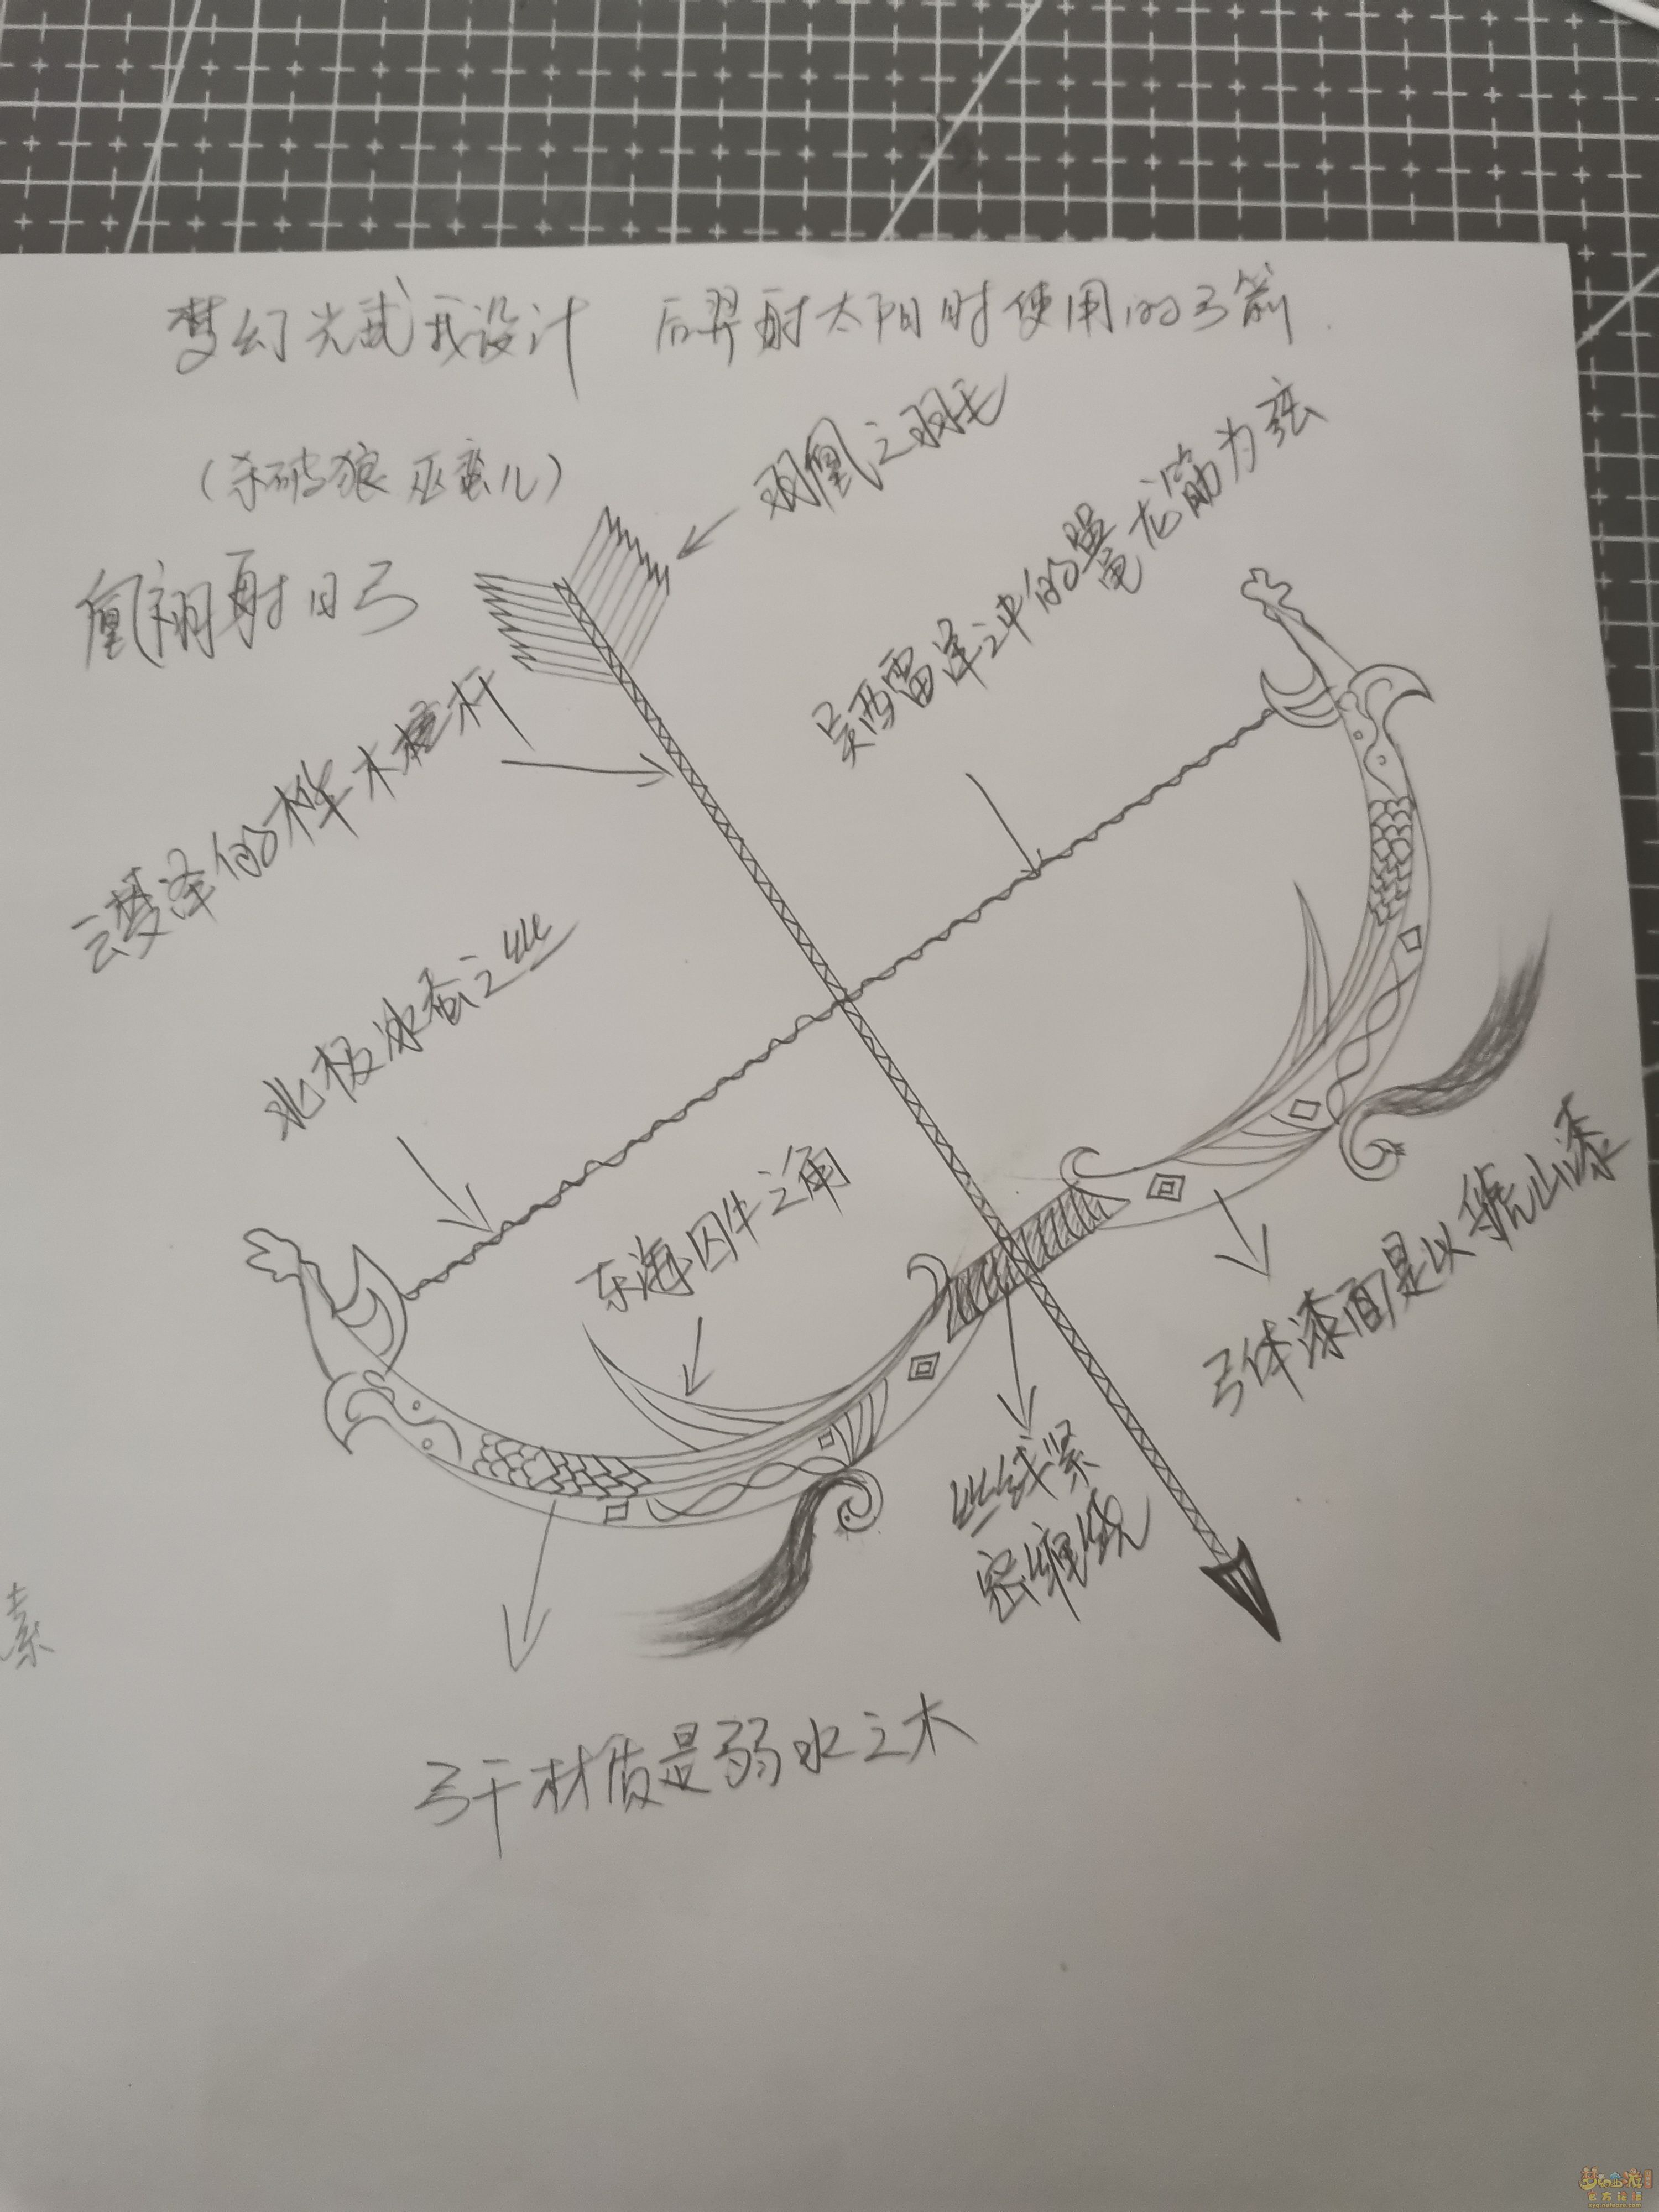 梦幻光武我设计 后羿射太阳时使用的弓箭
(杀破狼 巫蛮儿)
凰翎射日弓
双凰之羽毛
吴西雷泽之中的鼍龙筋为弦
云梦泽的桦木 杆
北极冰蚕之丝
东海囚牛之角
弓体漆面是以 山漆
丝线紧
密缠绕
弓干材质是弱水之木
素
梦幻西游
官方论坛